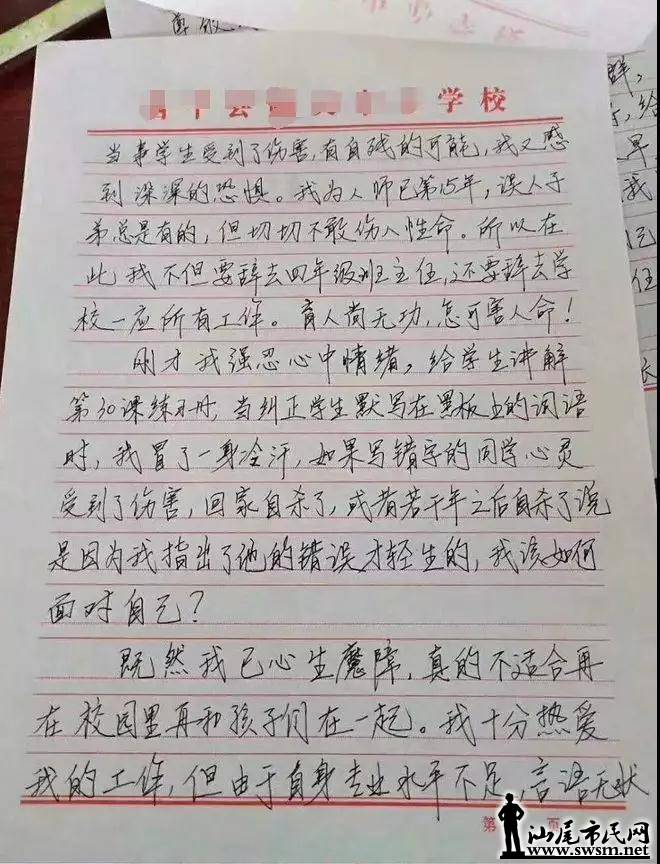 尊敬
学校
当事学生受到了伤害,有自残的可能,我又感
到深深的恐惧。我为人师已第15年,误人子
弟总是有的,但切切不敢伤人性命。所以在
此我不但要辞去四年级班主任,还要辞去学
校一应所有工作。育人尚无功,怎可害人命!
刚才我强忍心中情绪,给学生讲解
第30课练习册,当纠正学生默写在黑板上的词语
时,我冒了一身冷汗,如果写错字的同学心灵
受到了伤害,回家自杀了,或者若干年之后自杀了说
是因为我指出了他的错误才轻生的,我该如何
面对自己?
既然我已心生魔障,真的不适合再
在校园里再和孩子们在一起。我十分热爱
我的工作,但由于自身专业水平不足,言语无状
第 页
群,
给
早
我
己
任
汕尾市民网
www.swsm.net